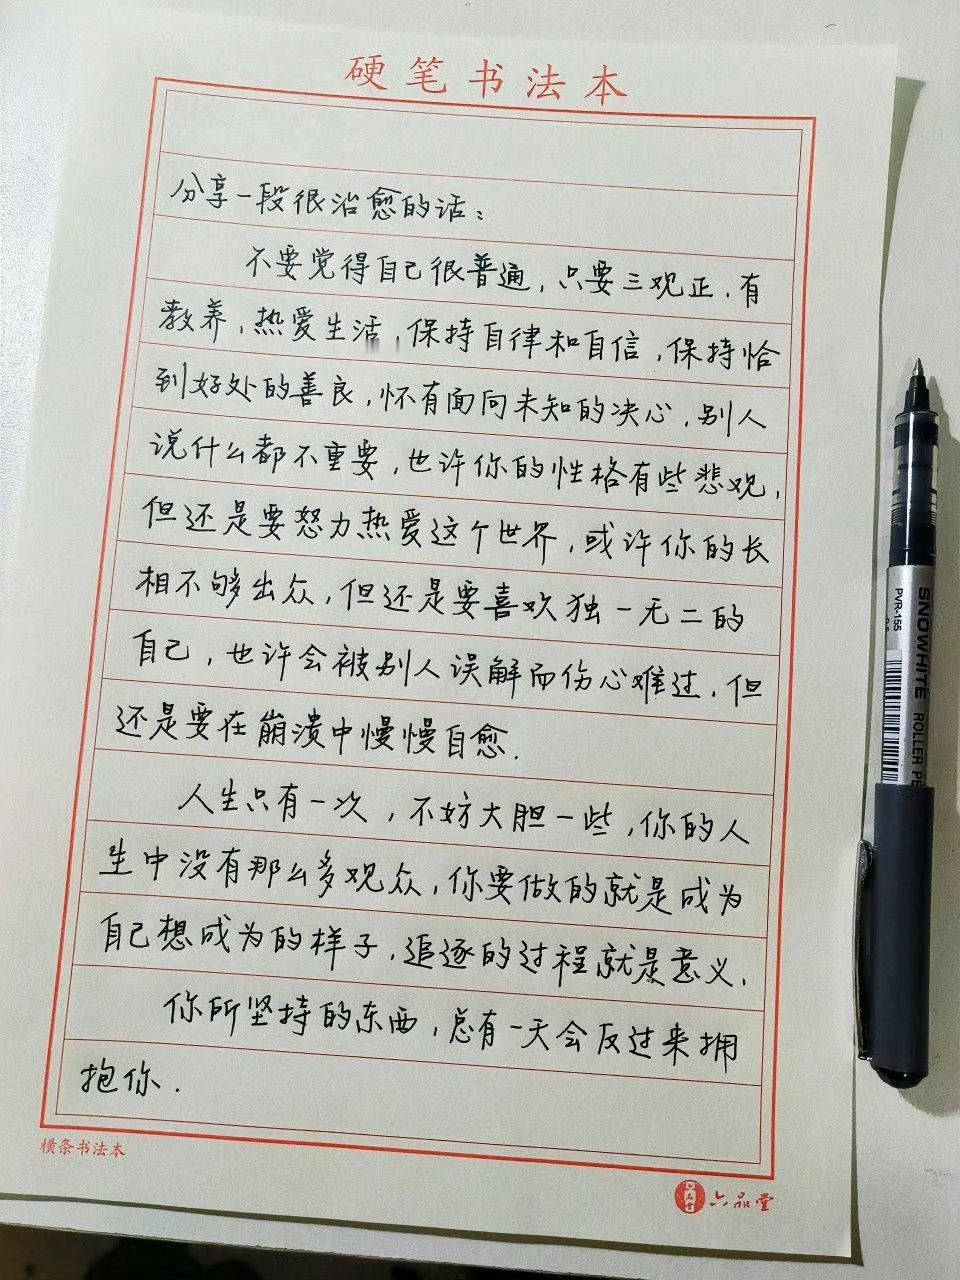 硬笔书法本
分享一段很治愈的话:
不要觉得自己很普通,只要三观正,有
教养,热爱生活,保持自律和自信,保持恰
到好处的善良,怀有面向未知的决心,别人
说什么都不重要,也许你的性格有些悲观,
但还是要努力热爱这个世界,或许你的长
相不够出众,但还是要喜欢独一无二的
自己,也许会被别人误解而伤心难过,但
还是要在崩溃中慢慢自愈.
人生只有一次,不妨大胆一些,你的人
生中没有那么多观众,你要做的就是成为
自己想成为的样子,追逐的过程就是意义.
你所坚持的东西,总有一天会反过来拥
抱你.
横条书法本
六品堂
SNOWHITE ROLLER PE
PVR-155